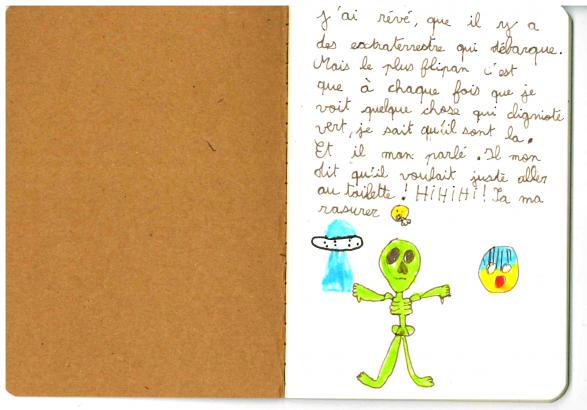 j'ai rêvé, que il y a
des extraterrestre qui débarque.
Mais le plus flipan c'est
que à chaque fois que je
voit quelque chose qui clignioté
vert, je sait qu'il sont la.
Et il mon parlé. Il mon
dit qu'il voulait juste aller
au toilette ! HiHiHi ! Sa ma
rasurer